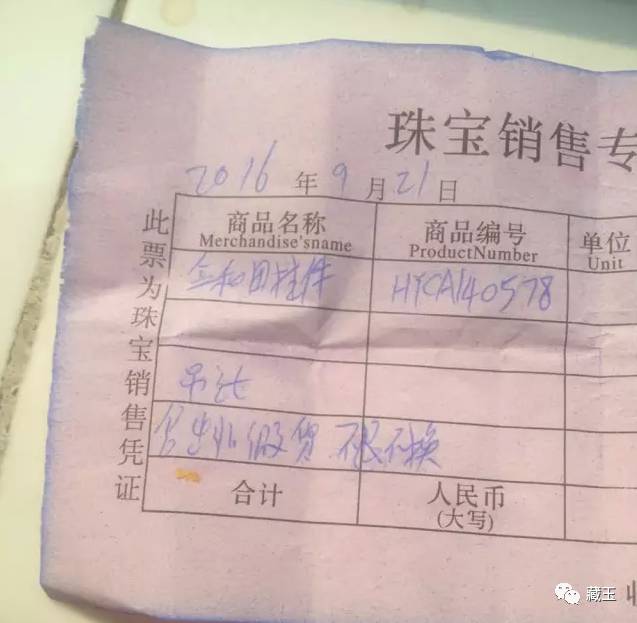 珠宝销售专
2016年9月21日
此票为珠宝销售凭证
商品名称 商品编号 单位
Merchandise'sname ProductNumber Unit
和田挂件 HYCA140578
假货 不退不换
合计 人民币
(大写)
藏玉